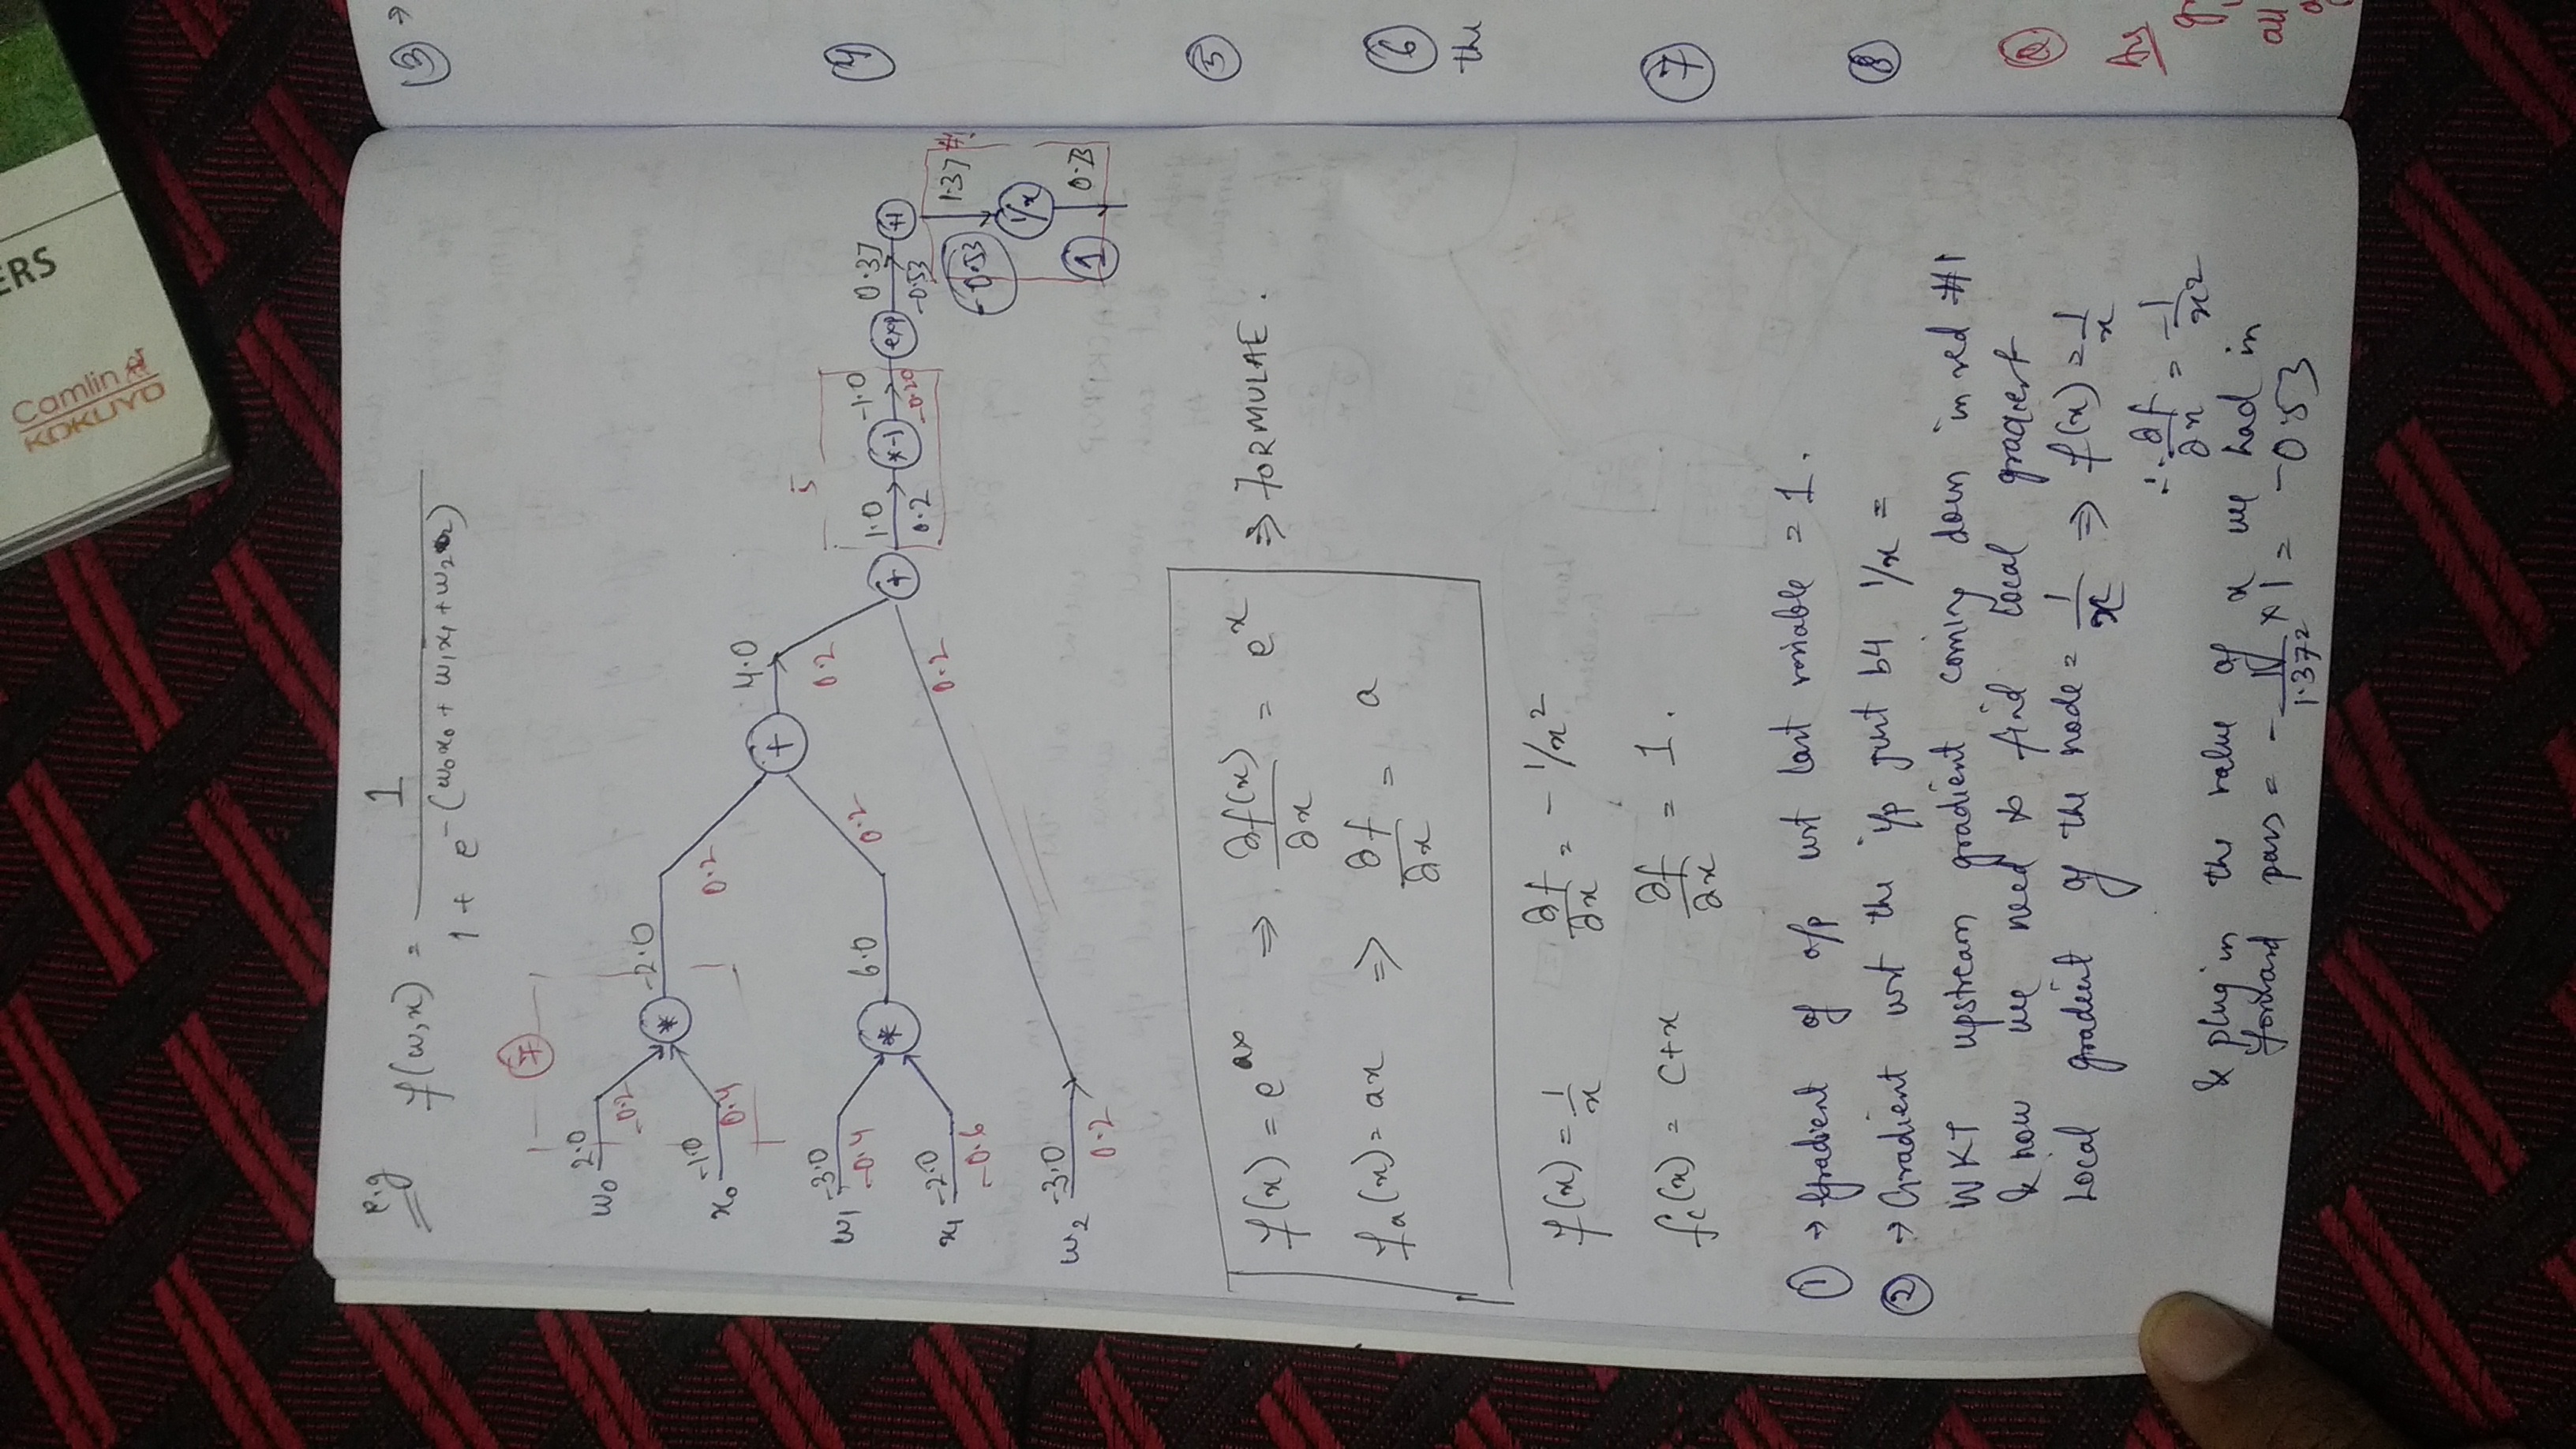 ERS
Camlin
KOKUYO
e.g
f(w,x) = 1 / 1 + e^-(w0x0 + w1x1 + w2)
7
w0 2.0
-0.2
* -2.0
x0 -1.0
0.4
0.2
+ 4.0
w1 -3.0
-0.4
0.2
5
* 6.0
0.2
+ 1.0 *-1 -1.0 exp 0.37 +1
0.2 -0.20 -0.53
x1 -2.0
-0.6
0.2
-0.53 1.37 #1
1/x
w2 -3.0
0.2
1 0.73
f(x) = e^ax ⇒ ∂f(x)/∂x = e^x ⇒ FORMULAE.
fa(x) = ax ⇒ ∂f/∂x = a
f(x) = 1/x ∂f/∂x = -1/x²
fc(x) = c+x ∂f/∂x = 1.
① → Gradient of o/p wrt last variable = 1.
② → Gradient wrt the i/p just b4 1/x =
WKT upstream gradient coming down in red #1
& now we need to find local gradient
Local gradient of the node = 1/x ⇒ f(x) = 1/x
∴ ∂f/∂x = -1/x²
& plug in the value of x we had in
forward pass = - 1/1.37² × 1 = -0.53
③ →
④
⑤
⑥
the
⑦
⑧
Q
Ans
all